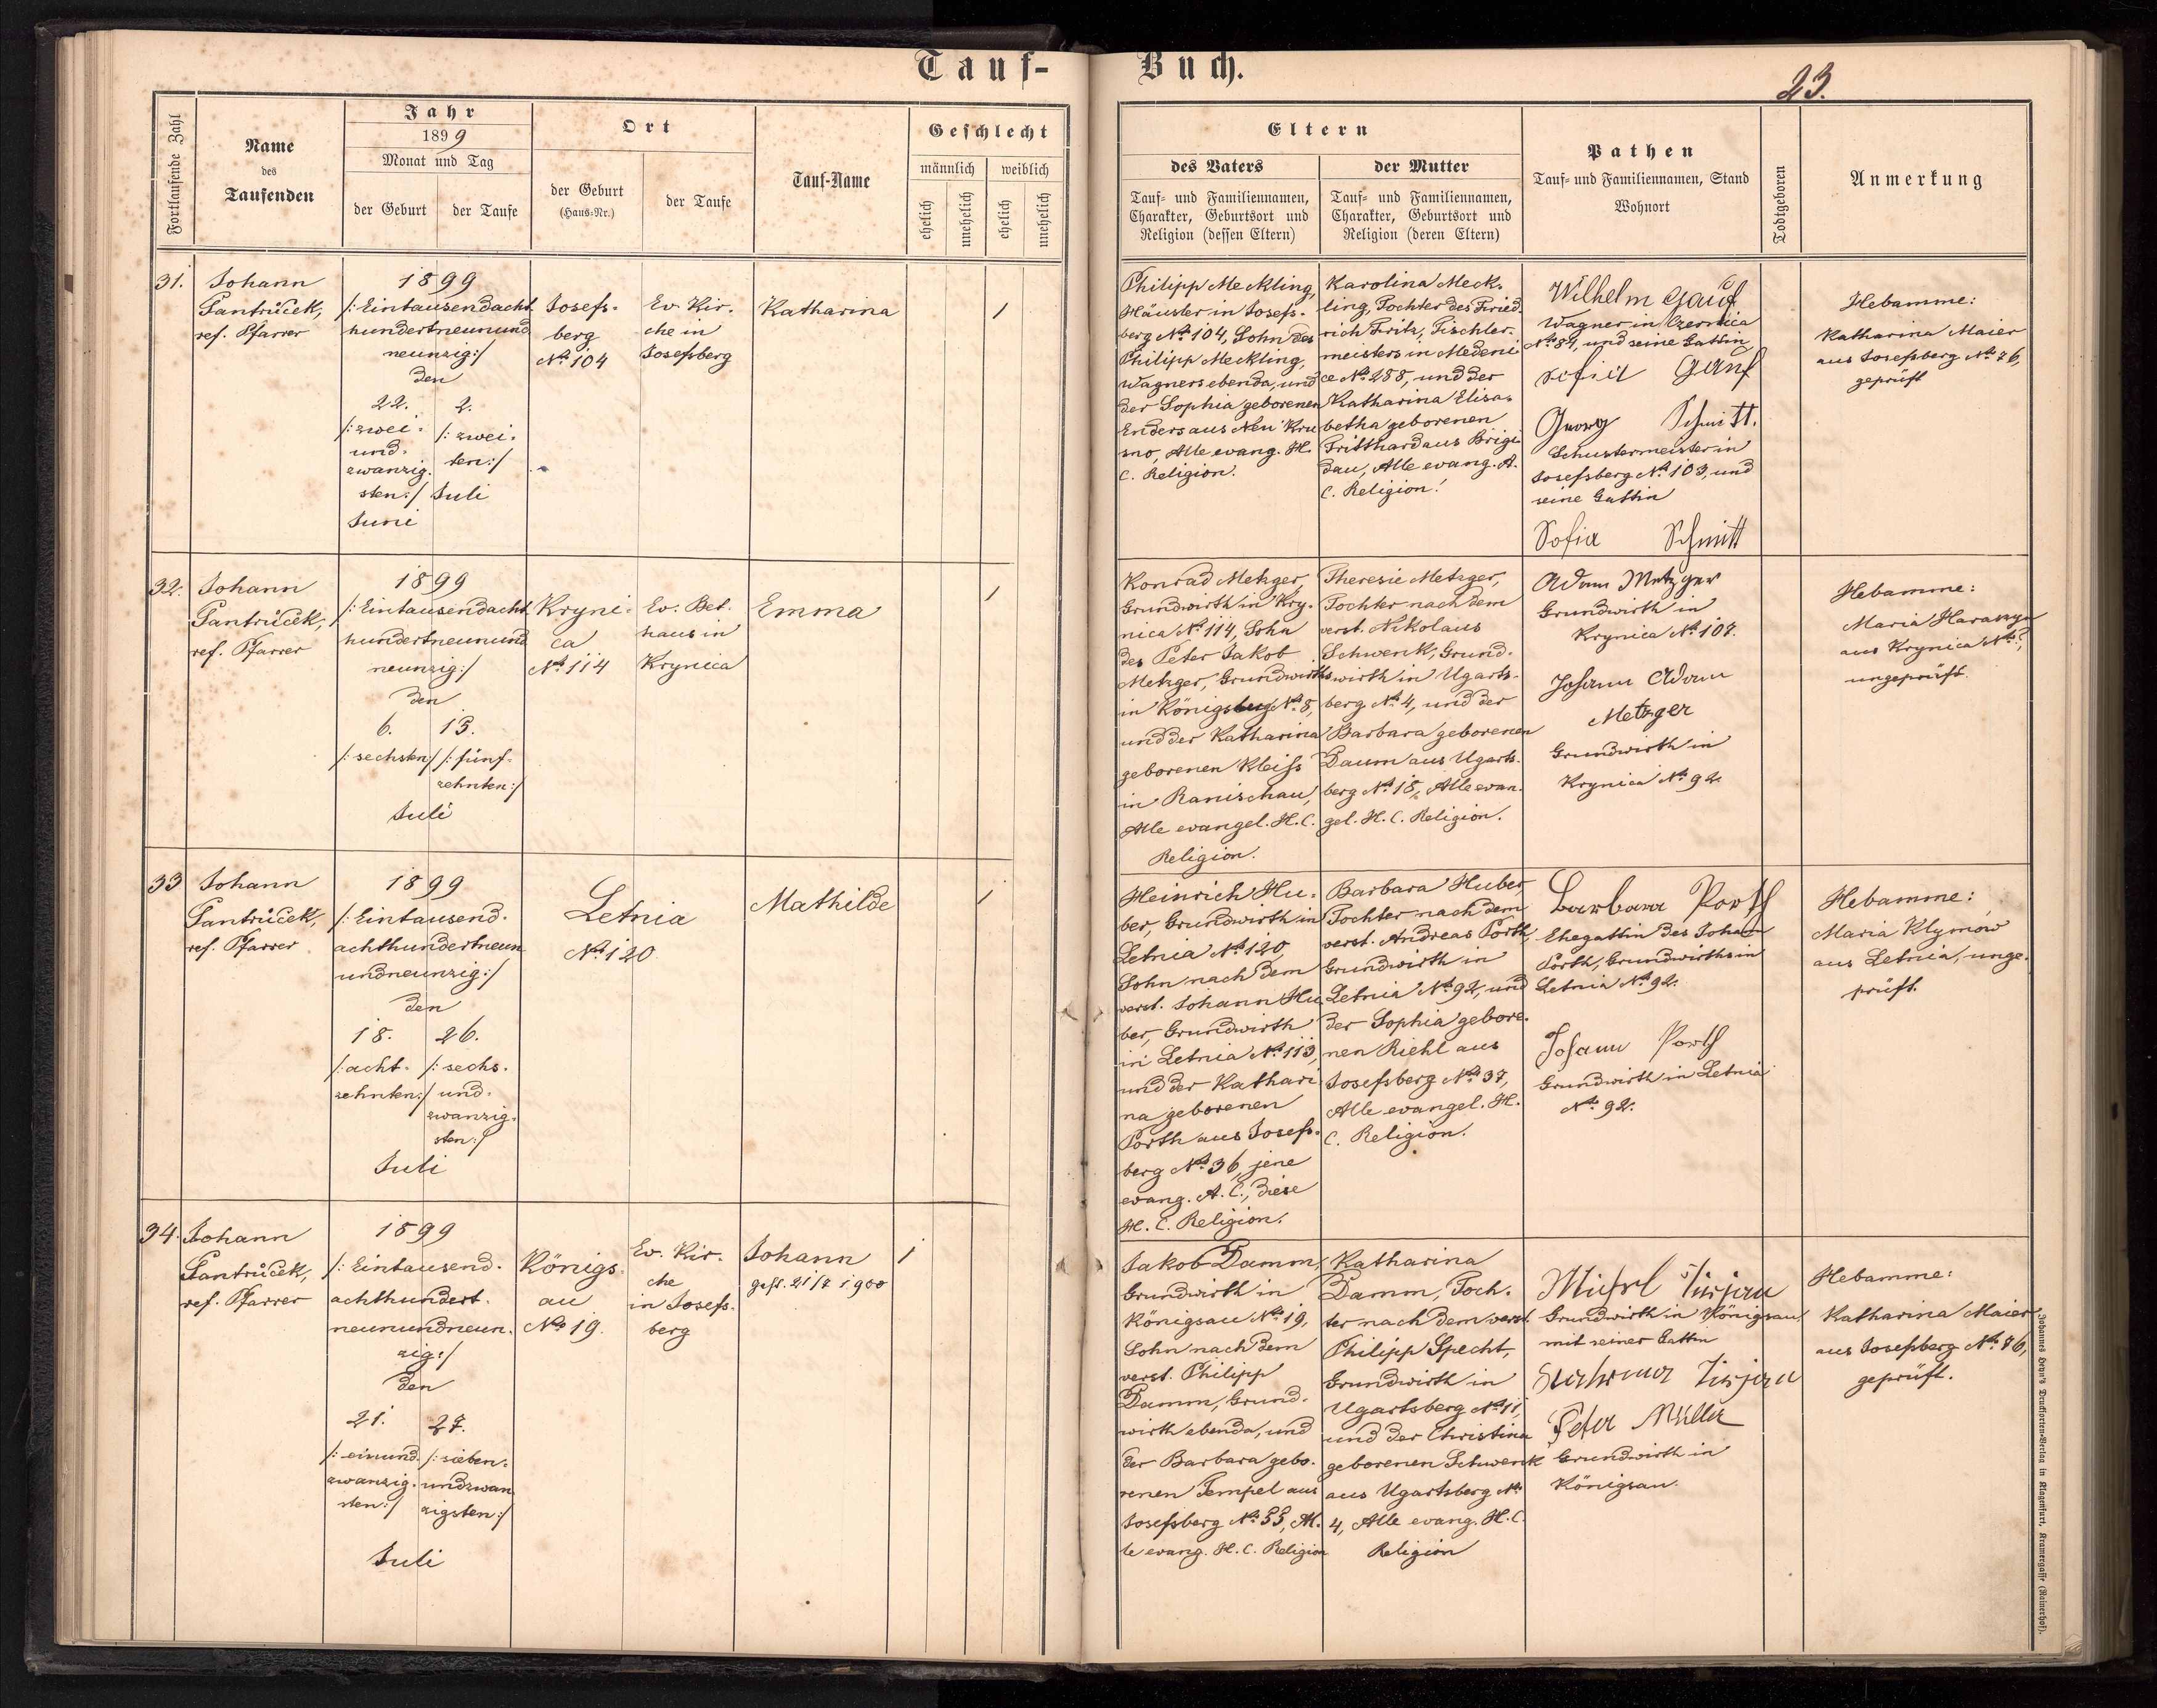 Tauf-
Buch.
23.
Fortlaufende Zahl
Name
des
Taufenden
Jahr
1899
Monat und Tag
der Geburt
der Taufe
Ort
der Geburt
(Haus-Nr.)
der Taufe
Tauf-Name
Geschlecht
männlich
weiblich
ehelich
unehelich
ehelich
unehelich
Eltern
des Vaters
Tauf- und Familiennamen,
Charakter, Geburtsort und
Religion (dessen Eltern)
der Mutter
Tauf- und Familiennamen,
Charakter, Geburtsort und
Religion (deren Eltern)
Pathen
Tauf- und Familiennamen, Stand
Wohnort
Todtgeboren
Anmerkung
31.
Johann
Pantrůček,
ref. Pfarrer
1899
/: Eintausendacht
hundertneunund
neunzig :/
den
22.
/: zwei-
und-
zwanzig-
sten :/
Juni
2.
/: zwei-
ten :/
Juli
Josefs-
berg
No. 104
Ev. Kir-
che in
Josefsberg
Katharina
1
Philipp Meckling,
Häusler in Josefs-
berg No. 104, Sohn des
Philipp Meckling,
Wagners ebenda, und
der Sophia geborenen
Enders aus Neu Kru
sno, Alle evang. H.
C. Religion.
Karolina Meck-
ling, Tochter des Fried-
rich Fritz, Tischler-
meisters in Medeni
ce No. 258, und der
Katharina Elisa-
betha geborenen
Fritthard aus Brigi
dau, Alle evang. A.
C. Religion.
Wilhelm Gauf
Wagner in Czernica
No. 84, und seine Gattin
Sofia Gauf
Georg Schmitt.
Schustermeister in
Josefsberg No. 103, und
seine Gattin
Sofia Schmitt
Hebamme:
Katharina Maier
aus Josefsberg No. 76,
geprüft
32.
Johann
Pantrůček,
ref. Pfarrer
1899
/: Eintausendacht
hundertneunund
neunzig :/
den
6.
/: sechsten :/
15.
/: fünf-
zehnten :/
Juli
Kryni-
ca
No. 114
Ev. Bet-
haus in
Krynica
Emma
1
Konrad Metzger,
Grundwirth in Kry-
nica No. 114, Sohn
des Peter Jakob
Metzger, Grundwirths
in Königsberg No. 8,
und der Katharina
geborenen Kleiss
in Ranischau,
Alle evangel. H. C.
Religion.
Theresie Metzger,
Tochter nach dem
verst. Nikolaus
Schwenk, Grund-
wirth in Ugarts-
berg No. 4, und der
Barbara geborenen
Daum aus Ugarts-
berg No. 18, Alle evan-
gel. H. C. Religion.
Adam Metzger
Grundwirth in
Krynica No. 107.
Johann Adam
Metzger
Grundwirth in
Krynica No. 92
Hebamme:
Maria
aus Krynica No. ?,
ungeprüft.
33
Johann
Pantrůček,
ref. Pfarrer
1899
/: Eintausend-
achthundertneun
undneunzig :/
den
18.
/: acht-
zehnten :/
26.
/: sechs-
und-
zwanzig-
sten :/
Juli
Letnia
No. 120
Mathilde
1
Heinrich Hu-
ber, Grundwirth in
Letnia No. 120,
Sohn nach dem
verst. Johann Hu
ber, Grundwirth
in Letnia No. 113,
und der Kathari
na geborenen
Porth aus Josefs-
berg No. 36, jene
evang. A. C., diese
H. C. Religion.
Barbara Huber,
Tochter nach dem
verst. Andreas Porth,
Grundwirth in
Letnia No. 92, und
der Sophia gebore-
nen Riehl aus
Josefsberg No. 37,
Alle evangel. H.
C. Religion.
Barbara Porth
Ehegattin des Johann
Porth, Grundwirths in
Letnia No. 92.
Johann Porth
Grundwirth in Letnia
No. 92.
Hebamme:
Maria Klymów
aus Letnia, unge-
prüft.
34.
Johann
Pantrůček,
ref. Pfarrer
1899
/: Eintausend-
achthundert-
neunundneun-
zig :/
den
21.
/: einund-
zwanzig-
sten :/
27.
/: sieben-
undzwan
zigsten :/
Juli
Königs-
au
No. 19.
Ev. Kir-
che
in Josefs-
berg
Johann
gest. 21/7 1900
1
Jakob Damm,
Grundwirth in
Königsau No. 19,
Sohn nach dem
verst. Philipp
Damm, Grund-
wirth ebenda, und
der Barbara gebo-
renen Tempel aus
Josefsberg No. 55, Al-
le evang. H. C. Religion
Katharina
Damm, Toch-
ter nach dem verst.
Philipp Specht,
Grundwirth in
Ugartsberg No. 11,
und der Christina
geborenen Schwenk
aus Ugartsberg No.
4, Alle evang. H. C.
Religion
Michel
Grundwirth in Königsau,
mit seiner Gattin
Peter Müller
Grundwirth in
Königsau.
Hebamme:
Katharina Maier
aus Josefsberg No. 76,
geprüft.
Johannes Heyn's Drucksorten-Verlag in Klagenfurt, Kramergasse (Rainerhof).